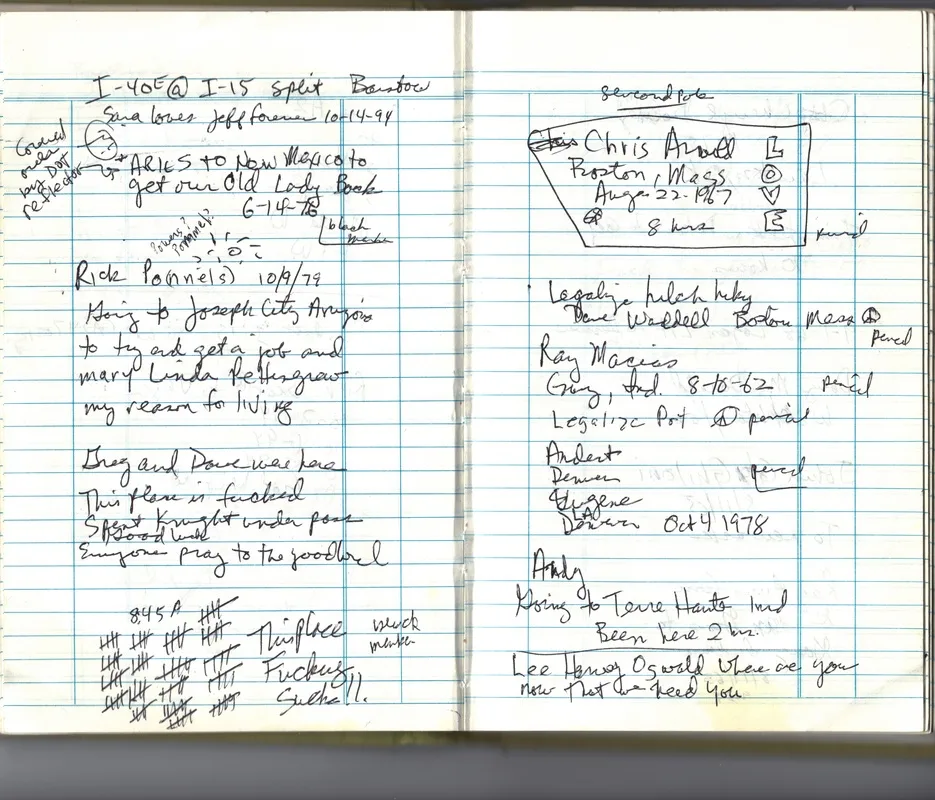 I-40E @ I-15 split Barstow
Sara loves Jeff forever 10-14-94
Covered
over
by DOT
reflector
ARIES to New Mexico to
get our Old Lady Back
6-14-76
black
marker
Powers?
Pommel?
Rick Po(nnels) 10/9/79
Going to Joseph City Arizona
to try and get a job and
marry Linda Pettisgrew
my reason for living
Greg and Dave were here
This place is fucked
Spent Knight under pass
Good luck
Everyone pray to the good lord
8:45 A
This place
Fucking
Sucks!!
black
marker
second pole
Chris Arnold
Boston, Mass
Aug 22-1967
8 hrs
L
O
V
E
Legalize
Dave Waddell Boston Mass
pencil
Ray Macias
Gary, Ind. 8-10-62 pencil
Legalize Pot pencil
Andert
Denver
pencil
Eugene
LA
Denver Oct 4 1978
Andy
Going to Terre Haute Ind
Been here 2 hrs.
Lee Harvey Oswald where are you
now that we need you